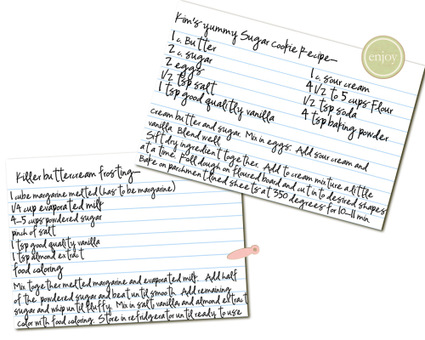 Kim's yummy Sugar cookie Recipe
1 c. Butter
2 c. sugar
2 eggs
1/2 tsp salt
1 tsp good quality vanilla
1 c. sour cream
4 1/2 to 5 cups Flour
1/2 tsp soda
4 tsp baking powder
Cream butter and sugar. Mix in eggs. Add sour cream and
vanilla. Blend well.
Sift dry ingredients together. Add to cream mixture a little
at a time. Roll dough on floured board and cut into desired shapes
Bake on parchment lined sheets at 350 degrees for 10-11 min
enjoy
Killer buttercream frosting
1 cube margarine melted (has to be margarine)
1/4 cup evaporated milk
4-5 cups powdered sugar
pinch of salt
1 tsp good quality vanilla
1 tsp almond extract
food coloring
Mix together melted margarine and evaporated milk. Add half
of the powdered sugar and beat until smooth. Add remaining
sugar and whip until fluffy. Mix in salt, vanilla and almond extract
color with food coloring. Store in refridgerator until ready to use